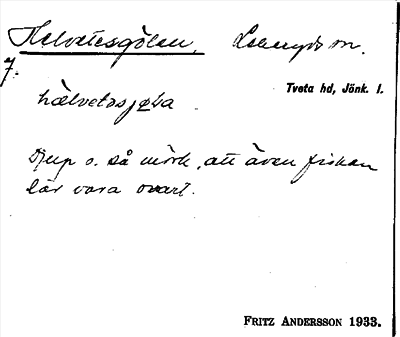 Helvetesgölen,
7.
Tveta hd, Jönk. l.
Djup o. så mörk, att även fiskan
lär vara svart.
FRITZ ANDERSSON 1933.